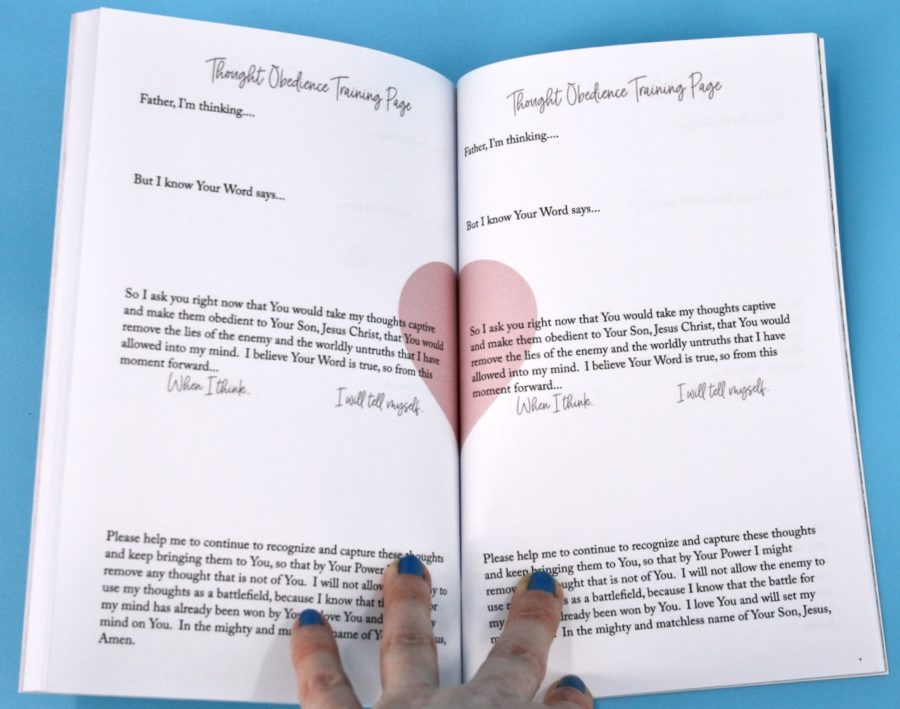 Thought Obedience Training Page
Father, I'm thinking....
But I know Your Word says...
So I ask you right now that You would take my thoughts captive
and make them obedient to Your Son, Jesus Christ, that You would
remove the lies of the enemy and the worldly untruths that I have
allowed into my mind. I believe Your Word is true, so from this
moment forward...
When I think... I will tell myself...
Please help me to continue to recognize and capture these thoughts
and keep bringing them to You, so that by Your Power I
remove any thought that is not of You. I will not allow to
use my thoughts as a battlefield, because I know that for
my mind has already been won by love You and my
mind on You. In the mighty and name of
Amen.
Thought Obedience Training Page
Father, I'm thinking....
But I know Your Word says...
So I ask you right now that You would take my thoughts captive
and make them obedient to Your Son, Jesus Christ, that You would
remove the lies of the enemy and the worldly untruths that I have
allowed into my mind. I believe Your Word is true, so from this
moment forward...
When I think... I will tell myself...
Please help me to continue to recognize and capture these thoughts
and keep bringing them to You, so that by Your Power I might
thought that is not of You. I will not allow the enemy to
use as a battlefield, because I know that the battle for
my already been won by You. I love You and will set my
In the mighty and matchless name of Your Son, Jesus,